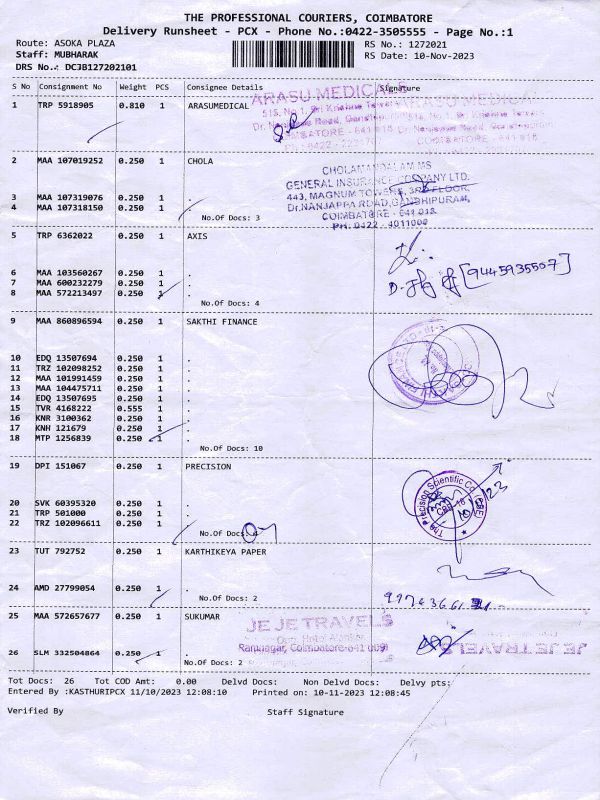 THE PROFESSIONAL COURIERS, COIMBATORE
Delivery Runsheet - PCX - Phone No.:0422-3505555 - Page No.:1
Route: ASOKA PLAZA RS No.: 1272021
Staff: MUBHARAK RS Date: 10-Nov-2023
DRS No.: DCJB127202101
S No Consignment No Weight PCS Consignee Details Signature
1 TRP 5918905 0.810 1 ARASUMEDICAL
ARASU MEDICALS
2 MAA 107019252 0.250 1 CHOLA
CHOLAMANDALAM MS
GENERAL INSURANCE COMPANY LTD.
443, MAGNUM TOWERS, 3RD FLOOR,
Dr.NANJAPPA ROAD, GANDHIPURAM,
COIMBATORE - 641 018.
PH: 0422 - 4011000
3 MAA 107319076 0.250 1 .
4 MAA 107318150 0.250 1 .
No.Of Docs: 3
5 TRP 6362022 0.250 1 AXIS
9445935507
6 MAA 103560267 0.250 1 .
7 MAA 600232279 0.250 1 .
8 MAA 572213497 0.250 1 .
No.Of Docs: 4
9 MAA 860896594 0.250 1 SAKTHI FINANCE
10 EDQ 13507694 0.250 1 .
11 TRZ 102098252 0.250 1 .
12 MAA 101991459 0.250 1 .
13 MAA 104475711 0.250 1 .
14 EDQ 13507695 0.250 1 .
15 TVR 4168222 0.555 1 .
16 KNR 3100362 0.250 1 .
17 KNH 121679 0.250 1 .
18 MTP 1256839 0.250 1 .
No.Of Docs: 10
19 DPI 151067 0.250 1 PRECISION
The Precision Scientific Co (CBE)
CBE-18
20 SVK 60395320 0.250 1 .
21 TRP 501000 0.250 1 .
22 TRZ 102096611 0.250 1 .
No.Of Docs: 4
23 TUT 792752 0.250 1 KARTHIKEYA PAPER
24 AMD 27799054 0.250 1 .
No.Of Docs: 2
25 MAA 572657677 0.250 1 SUKUMAR
JE JE TRAVELS
Ramnagar, Coimbatore-641 009
JE JE TRAVELS
26 SLM 332504864 0.250 1 .
No.Of Docs: 2
Tot Docs: 26 Tot COD Amt: 0.00 Delvd Docs: Non Delvd Docs: Delvy pts:
Entered By :KASTHURIPCX 11/10/2023 12:08:10 Printed on: 10-11-2023 12:08:45
Verified By Staff Signature